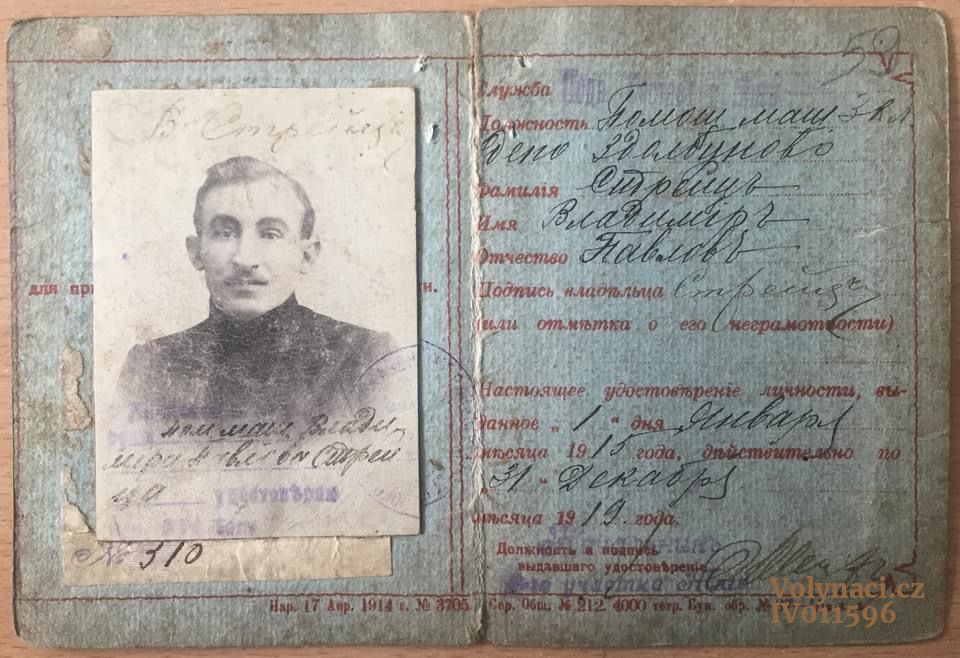 В. Стрейцъ
для при
и.
пом маш Влади-
мира Павлов Стрей
ца
№ 310
Нар. 17 Апр. 1914 г. № 3705.
53
Служба
Должность. Помощ маш 3 кл.
Депо Здолбуново
Фамилія Стрейцъ
Имя Владимиръ
Отчество Павловъ
Подпись владѣльца Стрейцъ
(или отмѣтка о его неграмотности)
Настоящее удостовѣреніе личности, вы-
данное „ 1 “ дня Января
мѣсяца 1915 года, дѣйствительно по
„ 31 “ Декабря
мѣсяца 1919. года.
Должность и подпись
выдавшаго удостовѣреніе
участка
Сер. Общ. № 212. 4000 тетр. Бум. обр. №
Volynaci.cz
IV011596